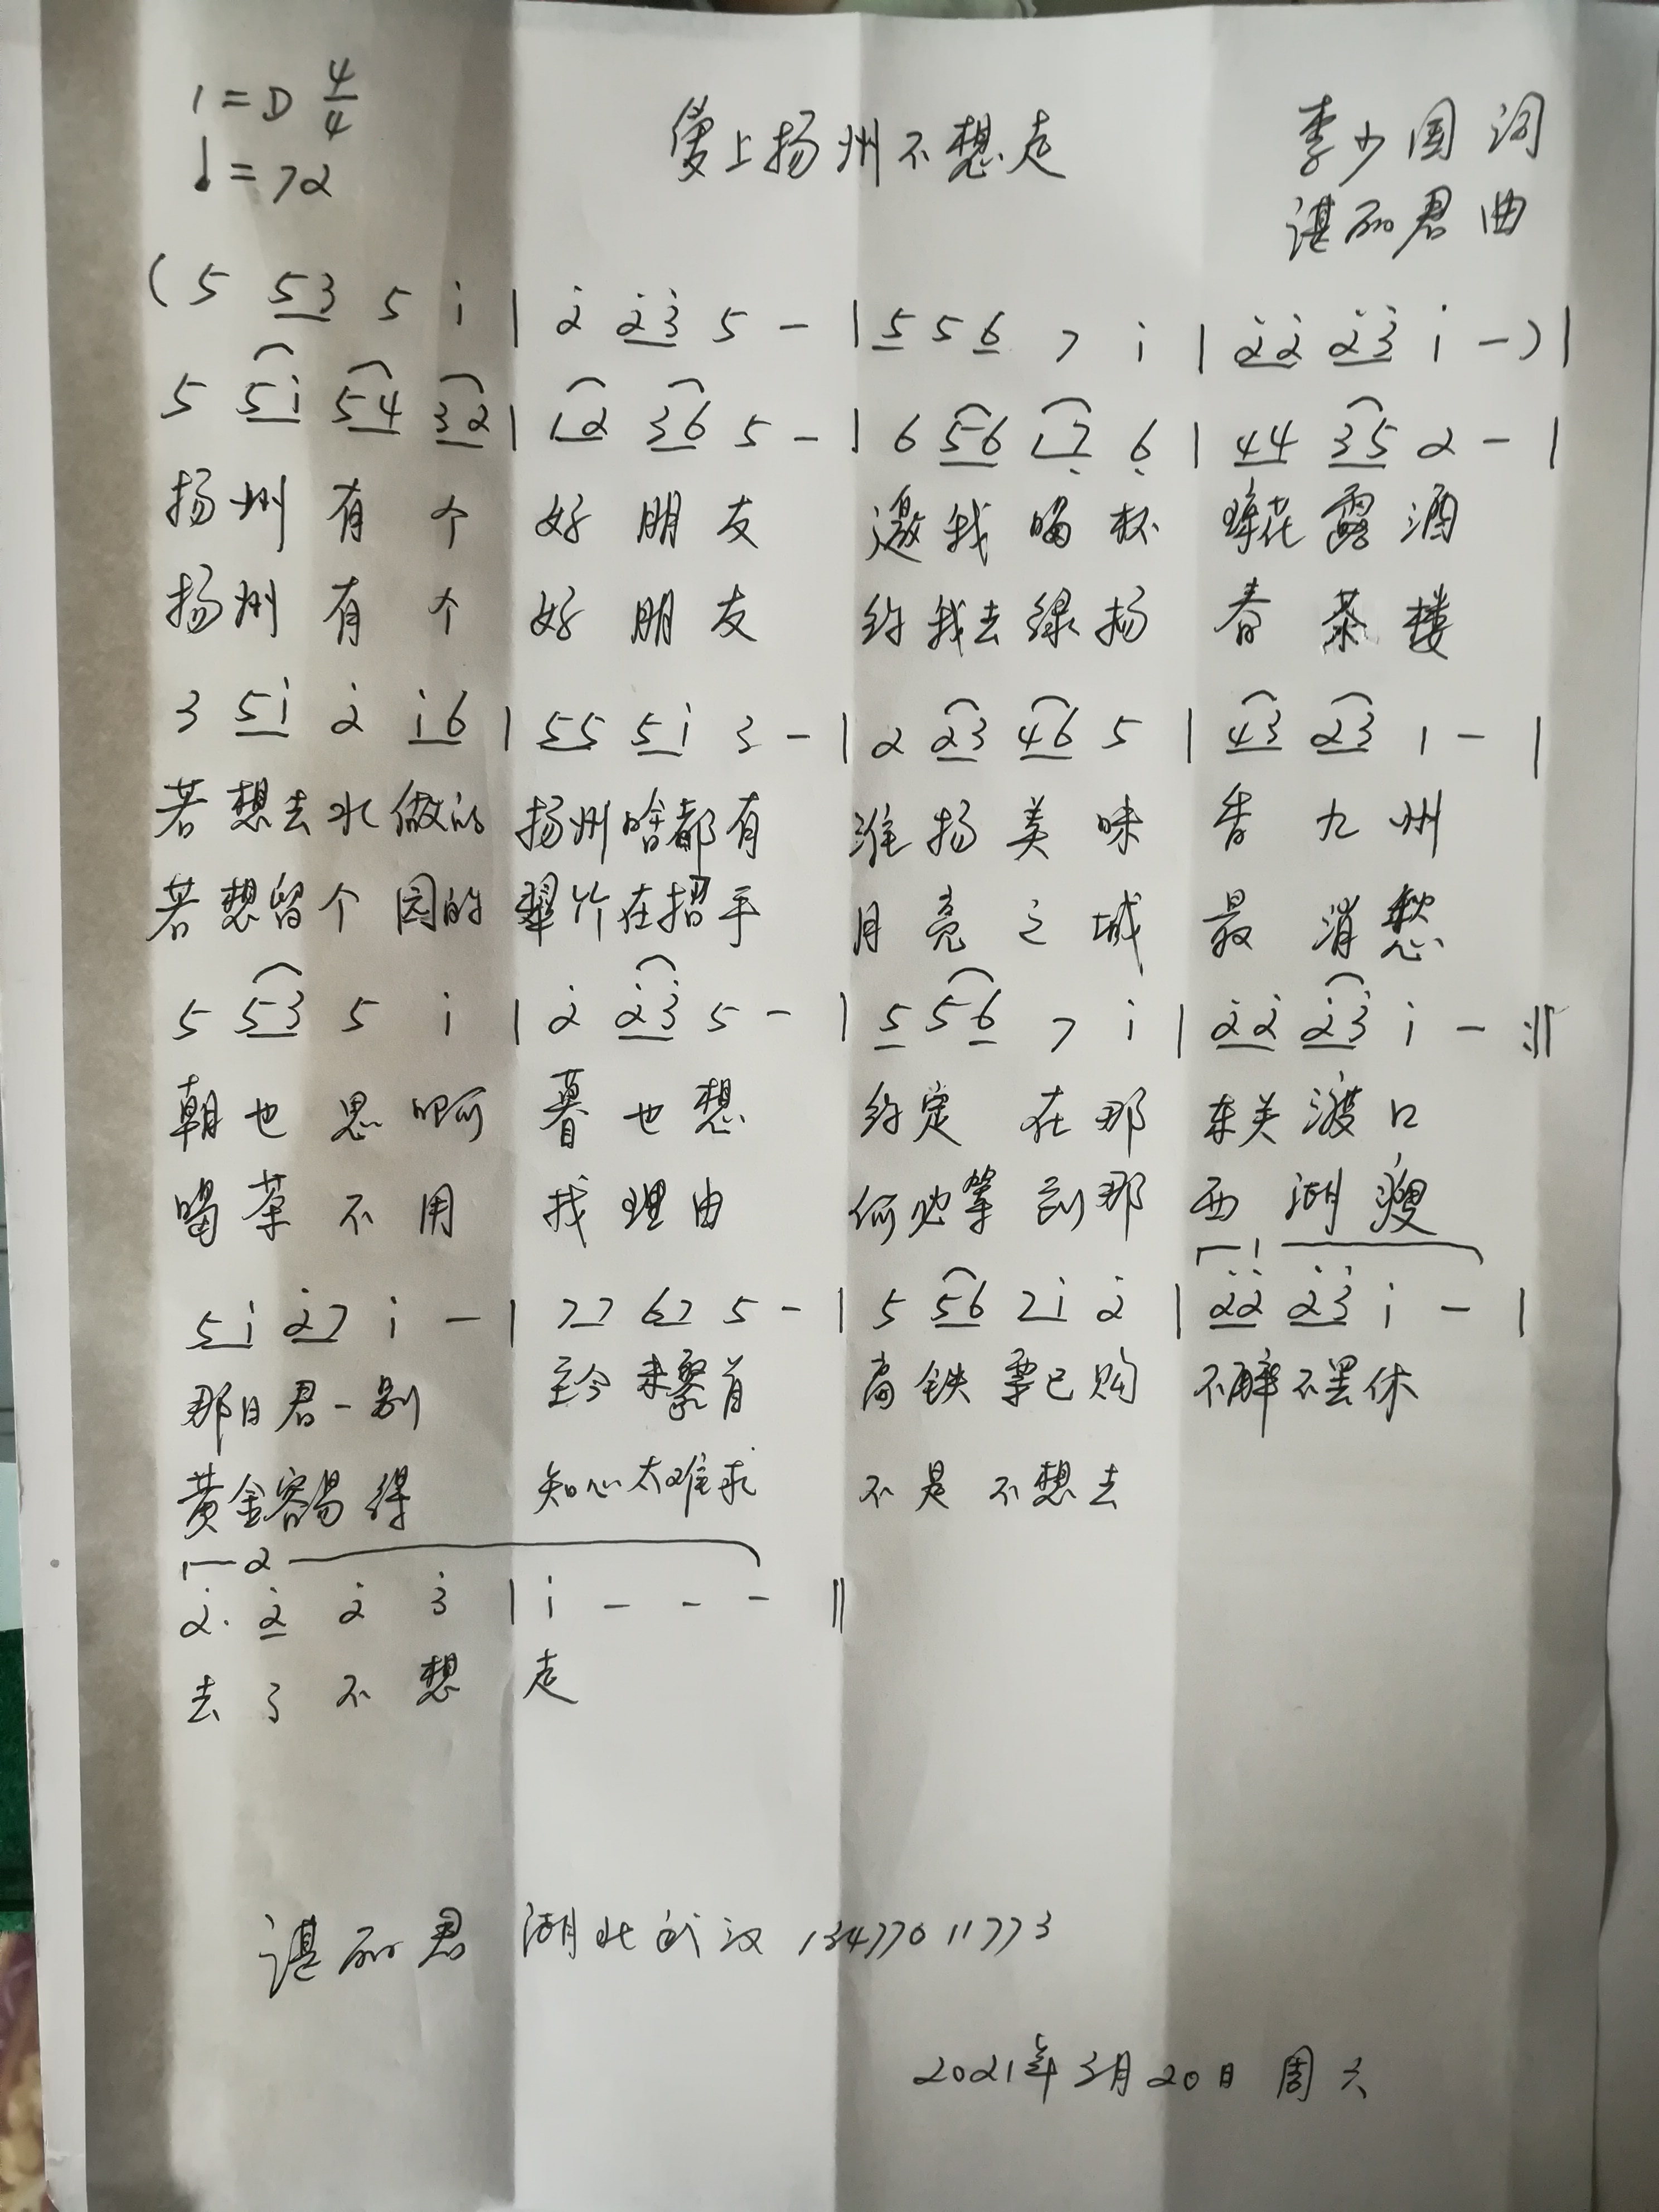 1=D 4/4
♩=72
爱上扬州不想走
李少国 词
谌丽君 曲
(5 53 5 i | 2̇ 2̇3̇ 5 - | 5 5 6 7 i | 2̇2̇ 2̇3̇ i -)|
5 5i 54 32 | 12 36 5 - | 6 56 17̣ 6̣ | 44 35 2 - |
扬州有个 好朋友 邀我喝杯 琼花露酒
扬州有个 好朋友 约我去绿扬 春茶楼
3 5i 2̇ i6 | 55 5i 3 - | 2 23 46 5 | 43 23 1 - |
若想去水做的 扬州啥都有 淮扬美味 香九州
若想留个园的 翠竹在招手 月亮之城 最消愁
5 53 5 i | 2̇ 2̇3̇ 5 - | 5 5 6 7 i | 2̇2̇ 2̇3̇ i - :‖
朝也思啊 暮也想 约定在那 东关渡口
喝茶不用 找理由 何必等到那 西湖瘦
1
5i 2̇7 i - | 77 67 5 - | 5 56 7i 2̇ | 2̇2̇ 2̇3̇ i - |
那日君一别 至今未聚首 高铁票已购 不醉不罢休
黄金容易得 知心太难求 不是不想去
2
2̇. 2̇ 2̇ 3̇ | i - - - ‖
去了不想 走
谌丽君 湖北武汉 13477011773
2021年3月20日 周六